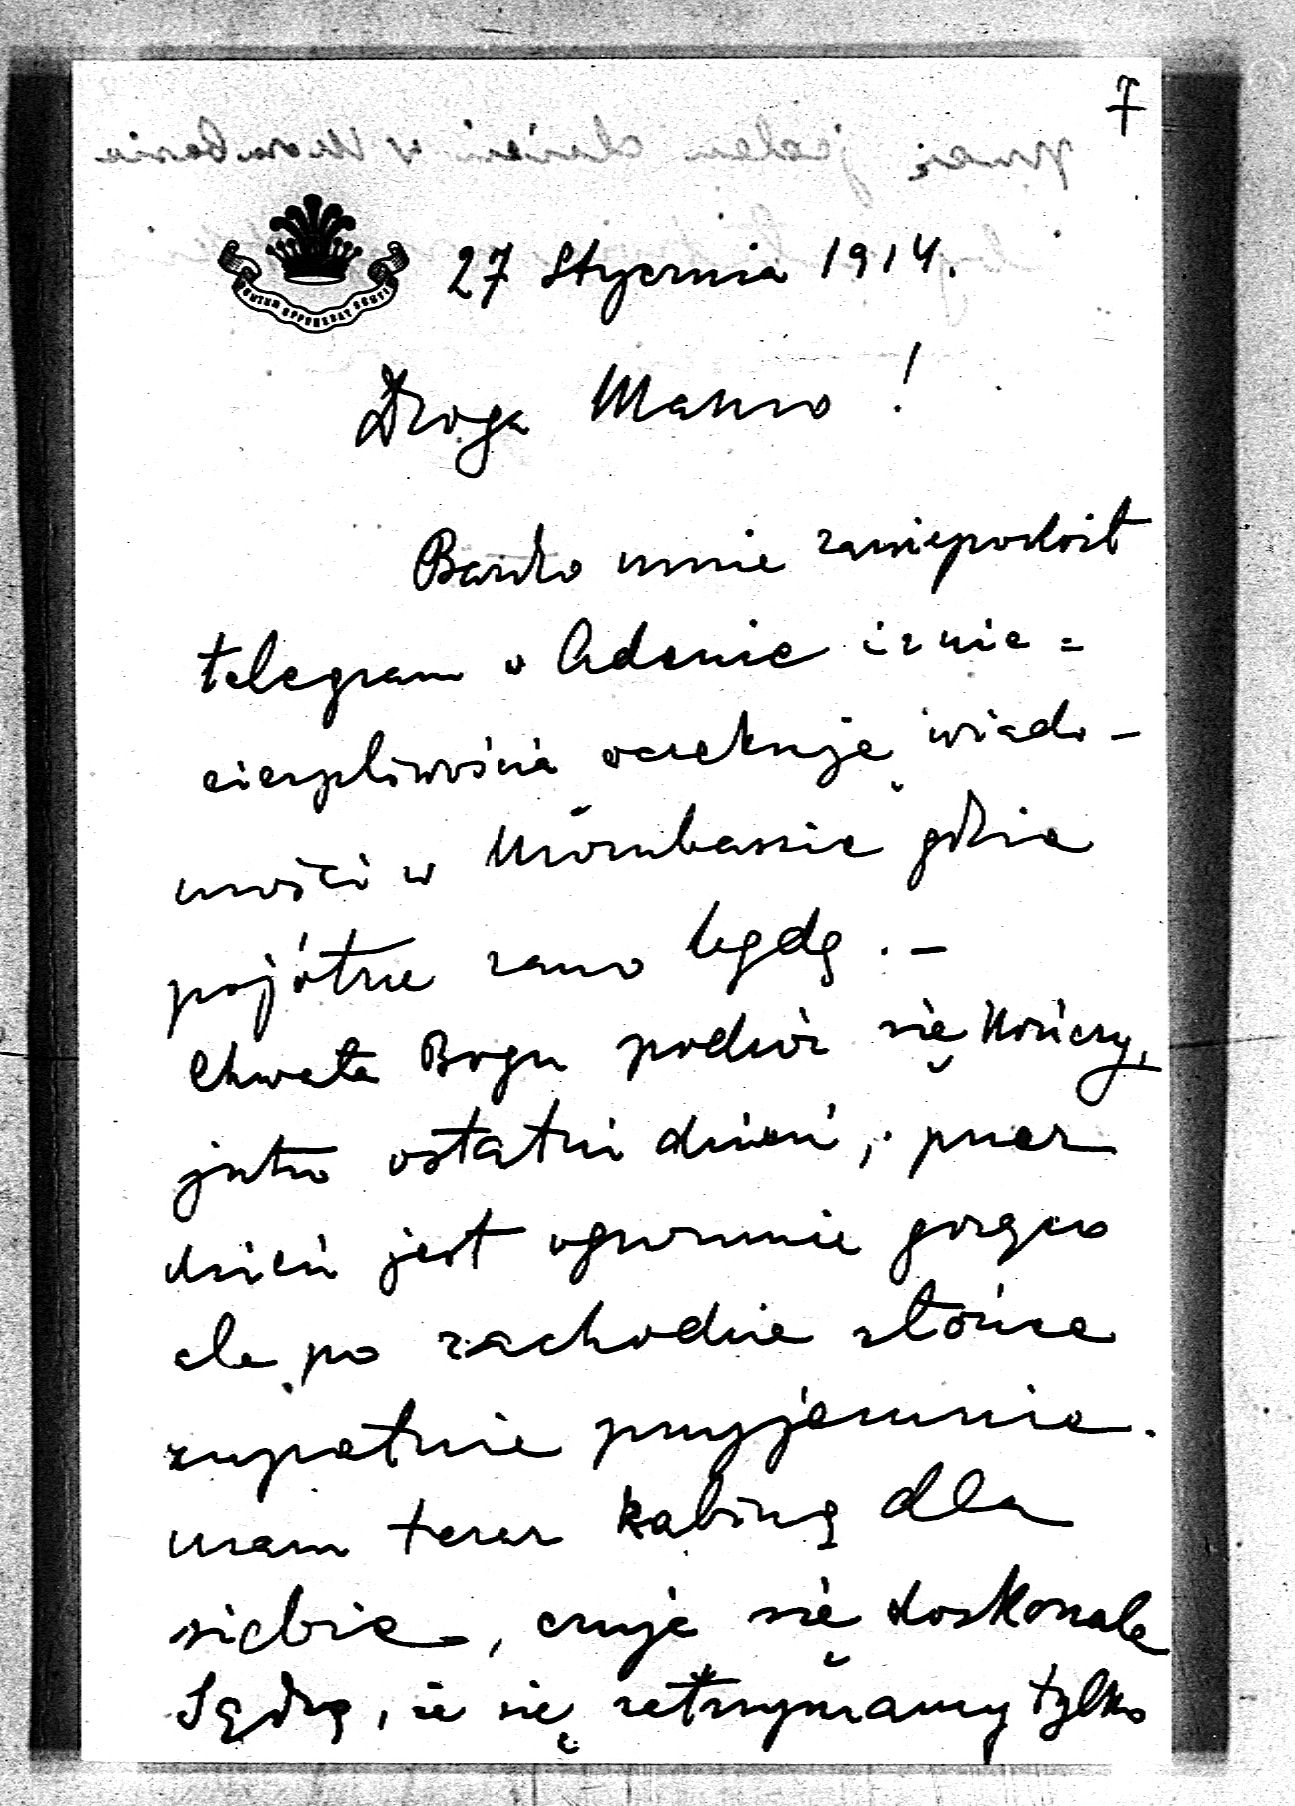 7
27 Stycznia 1914.
Droga Mamo!
Bardzo mnie zaniepokoił
telegram w Adenie i z nie=
cierpliwością oczekuję wiado-
mości w Mombassie gdzie
pojótrze rano będę.-
Chwała Bogu podróż się kończy,
jutro ostatni dzień, przez
dzień jest ogromnie gorąco
ale po zachodzie słońca
zupełnie przyjemnie.
mam teraz kabinę dla
siebie, czuję się doskonale
Sądzę, że się zatrzymamy tylko